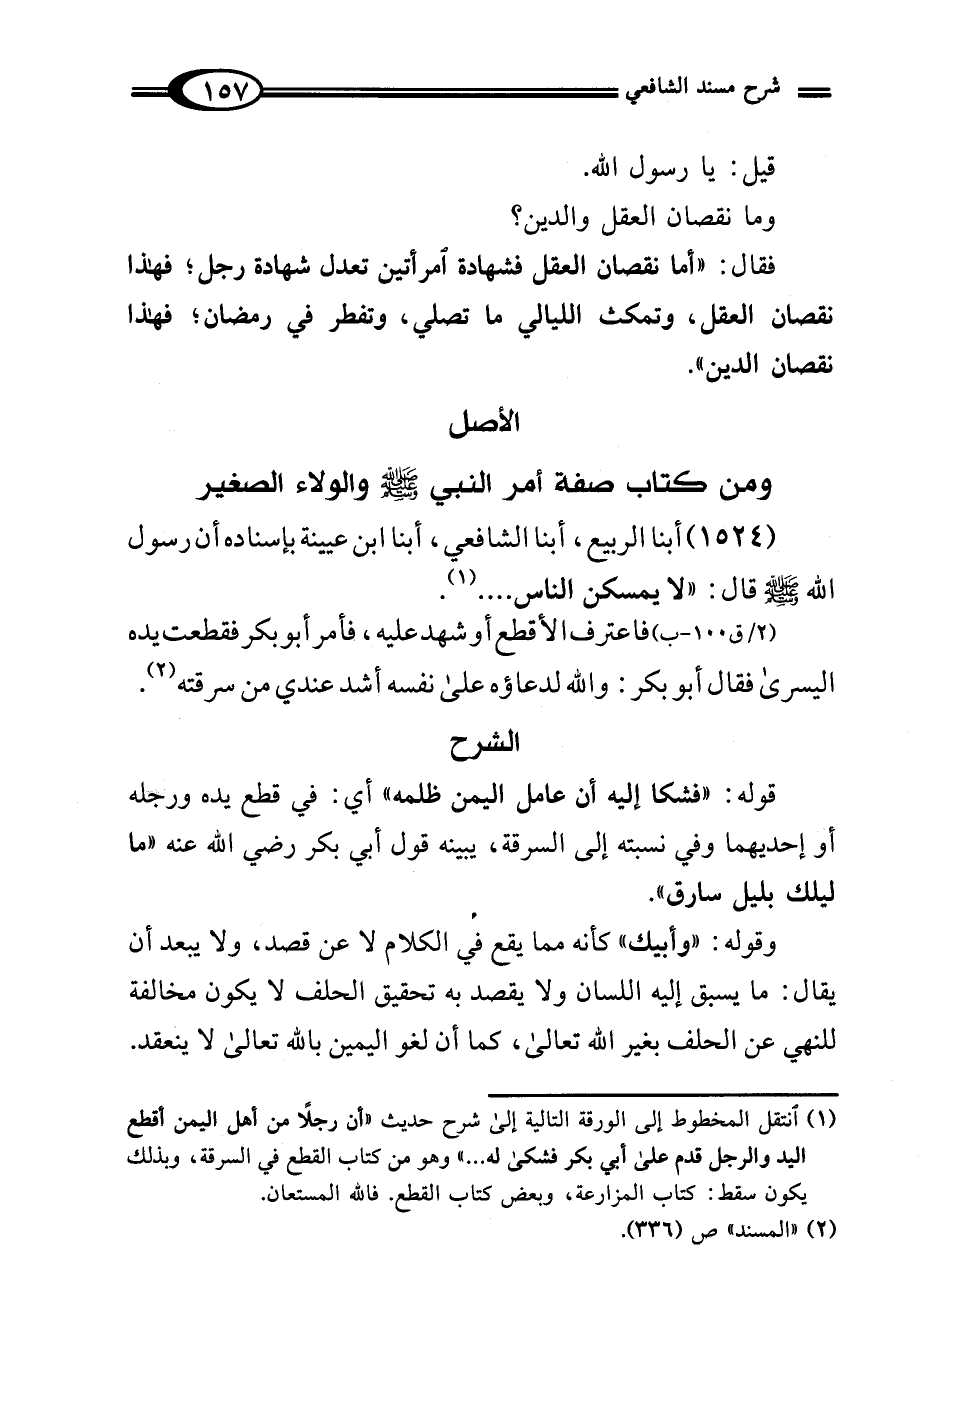 شرح مسند الشافعي
١٥٧
قيل: يا رسول الله.
وما نقصان العقل والدين؟
فقال: «أما نقصان العقل فشهادة ٱمرأتين تعدل شهادة رجل؛ فهذا
نقصان العقل، وتمكث الليالي ما تصلي، وتفطر في رمضان؛ فهذا
نقصان الدين».
الأصل
ومن كتاب صفة أمر النبي ﷺ والولاء الصغير
(١٥٢٤) أبنا الربيع، أبنا الشافعي، أبنا ابن عيينة بإسناده أن رسول
الله ﷺ قال: «لا يمسكن الناس....(١).
(٢/ ق١٠٠-ب) فاعترف الأقطع أو شهد عليه، فأمر أبو بكر فقطعت يده
اليسرىٰ فقال أبو بكر: والله لدعاؤه علىٰ نفسه أشد عندي من سرقته(٢).
الشرح
قوله: «فشكا إليه أن عامل اليمن ظلمه» أي: في قطع يده ورجله
أو إحديهما وفي نسبته إلى السرقة، يبينه قول أبي بكر رضي الله عنه «ما
ليلك بليل سارق».
وقوله: «وأبيك» كأنه مما يقع في الكلام لا عن قصد، ولا يبعد أن
يقال: ما يسبق إليه اللسان ولا يقصد به تحقيق الحلف لا يكون مخالفة
للنهي عن الحلف بغير الله تعالىٰ، كما أن لغو اليمين بالله تعالىٰ لا ينعقد.
(١) ٱنتقل المخطوط إلى الورقة التالية إلىٰ شرح حديث «أن رجلًا من أهل اليمن أقطع
اليد والرجل قدم علىٰ أبي بكر فشكىٰ له...» وهو من كتاب القطع في السرقة، وبذلك
يكون سقط: كتاب المزارعة، وبعض كتاب القطع. فالله المستعان.
(٢) «المسند» ص (٣٣٦).